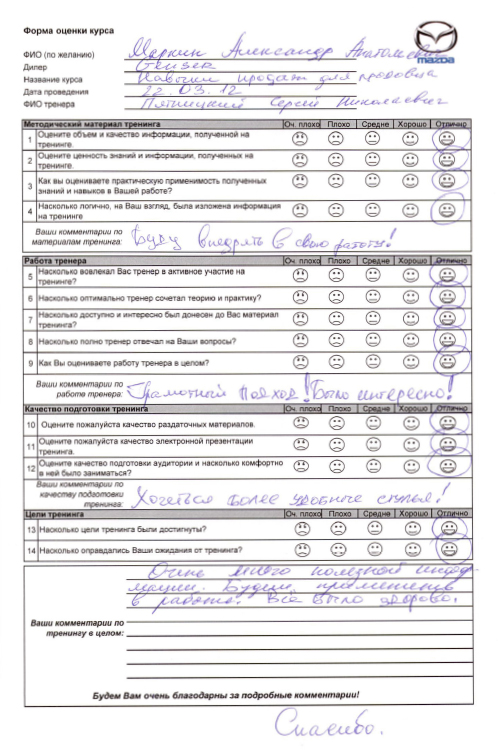 Форма оценки курса
mazda
ФИО (по желанию) Маркин Александр Анатольевич
Дилер Гензер
Название курса Навыки продаж для продавца
Дата проведения 22.03.12
ФИО тренера Пятницкий Сергей Николаевич
Методический материал тренинга Оч. плохо Плохо Средне Хорошо Отлично
1 Оцените объем и качество информации, полученной на
тренинге.
2 Оцените ценность знаний и информации, полученных на
тренинге.
3 Как вы оцениваете практическую применимость полученных
знаний и навыков в Вашей работе?
4 Насколько логично, на Ваш взгляд, была изложена информация
на тренинге
Ваши комментарии по
материалам тренинга: Буду внедрять в свою работу!
Работа тренера Оч. плохо Плохо Средне Хорошо Отлично
5 Насколько вовлекал Вас тренер в активное участие на
тренинге?
6 Насколько оптимально тренер сочетал теорию и практику?
7 Насколько доступно и интересно был донесен до Вас материал
тренинга?
8 Насколько полно тренер отвечал на Ваши вопросы?
9 Как Вы оцениваете работу тренера в целом?
Ваши комментарии по
работе тренера: Грамотный подход! Было интересно!
Качество подготовки тренинга Оч. плохо Плохо Средне Хорошо Отлично
10 Оцените пожалуйста качество раздаточных материалов.
11 Оцените пожалуйста качество электронной презентации
тренинга.
12 Оцените качество подготовки аудитории и насколько комфортно
в ней было заниматься?
Ваши комментарии по
качеству подготовки
тренинга: Хочеться более удобные стулья!
Цели тренинга Оч. плохо Плохо Средне Хорошо Отлично
13 Насколько цели тренинга были достигнуты?
14 Насколько оправдались Ваши ожидания от тренинга?
Очень много полезной инфор-
мации. Будем применять
в работе. Всё было здорово.
Ваши комментарии по
тренингу в целом:
Будем Вам очень благодарны за подробные комментарии!
Спасибо.